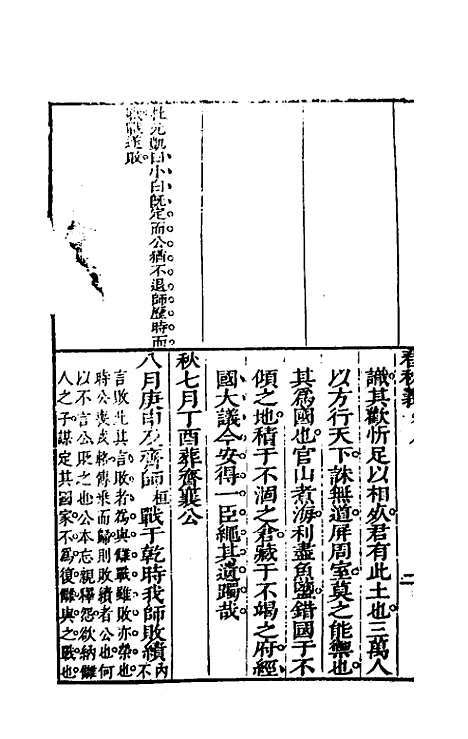 春秋義
識其歡忻足以相死君有此土也三萬人
以方行天下誅無道屏周室莫之能禦也
其爲國也官山煮海利盡魚鹽錯國于不
傾之地積于不涸之倉藏于不竭之府經
國大議今安得一臣繩其遺躅哉
秋七月丁酉葬齊襄公
八月庚申及齊師戰于乾時我師敗績
內不
言敗此其言敗者為與讎戰雖敗亦榮也
時公喪戎路傳乘而歸則敗績者公也何
以不言公貶之也公本忘親釋怨欲納讎
人之子謀定其國家不爲復讎與之戰也
杜元凱曰小白旣定而公猶不退師歷時而
戰遂敗